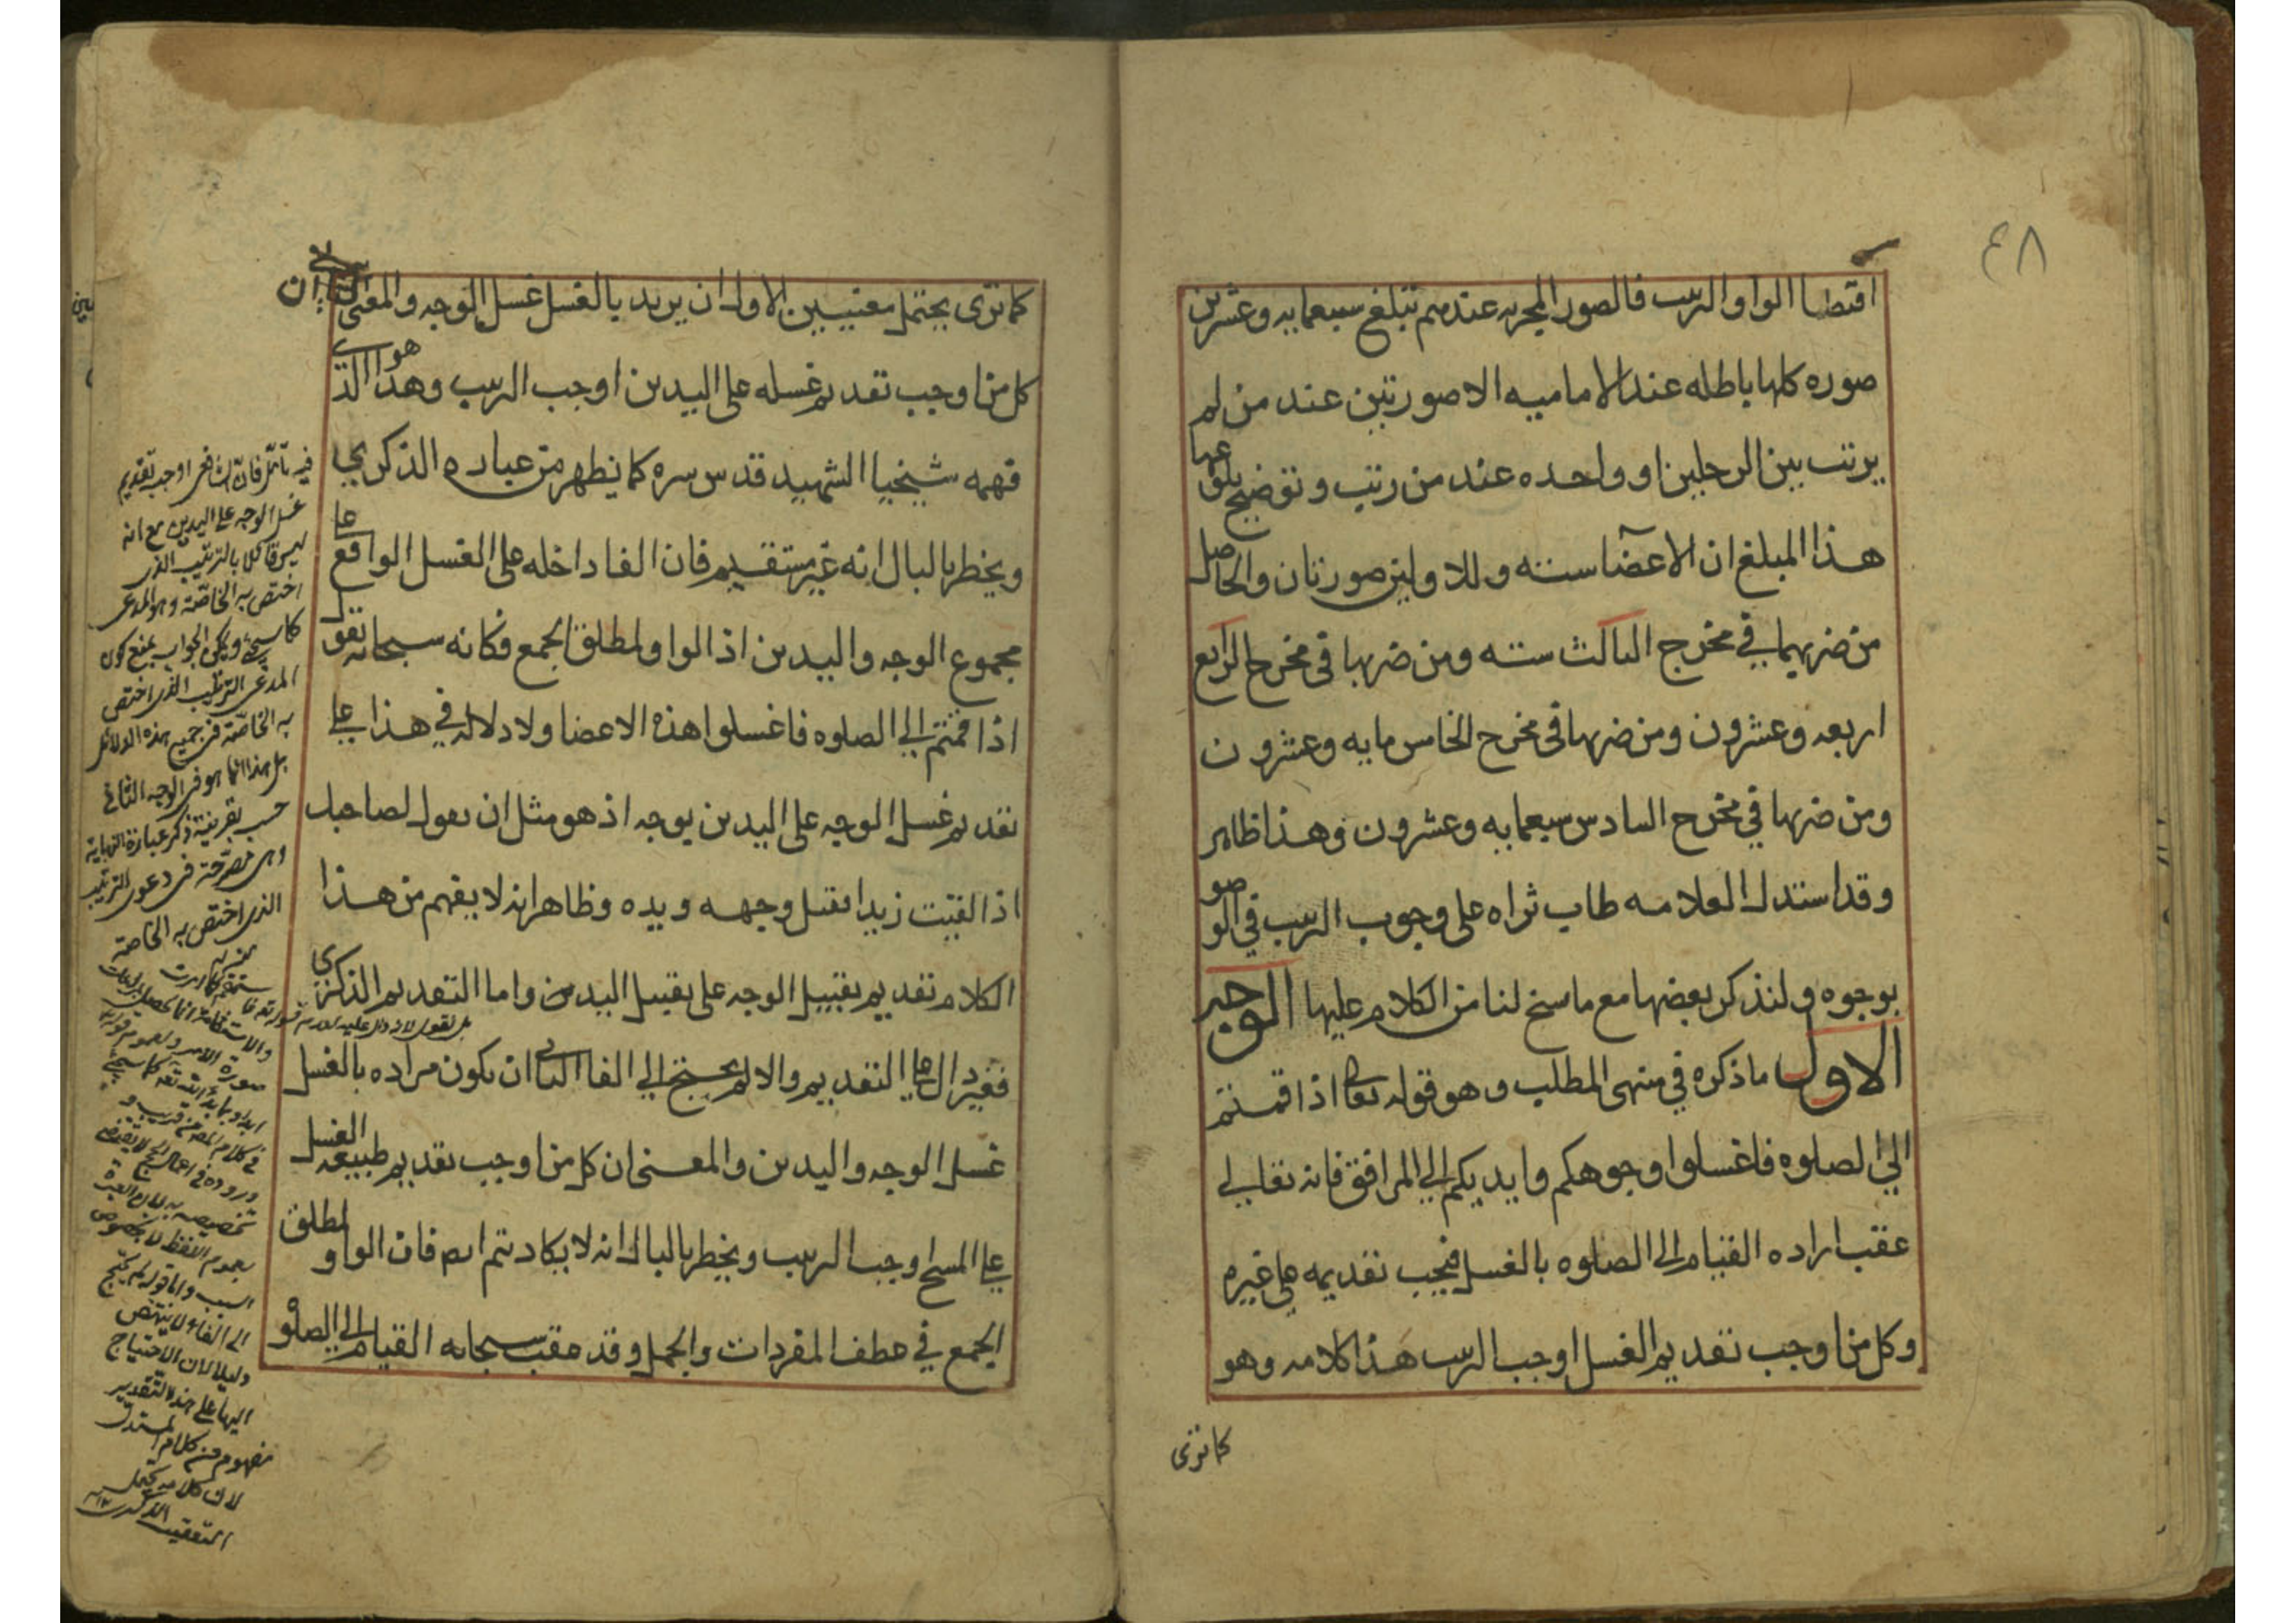 ٤٨
اقتضا الواو الترتيب فالصور المجزيه عندهم تبلغ سبعمايه وعشرين
صوره كلها باطله عند الاماميه الا صورتين عند من لم
يرتب بين الرجلين او واحده عند من رتب وتوضيح بلوغها
هذا المبلغ ان الاعضا سته وللاولين صورتان والحاصل
من ضربهما في مخرج الثالث سته ومن ضربها في مخرج الرابع
اربعه وعشرون ومن ضربها في مخرج الخامس مايه وعشرون
ومن ضربها في مخرج السادس سبعمايه وعشرون وهذا ظاهر
وقد استدل العلامه طاب ثراه على وجوب الترتيب في الوضو
بوجوه ولنذكر بعضها مع ما سنح لنا من الكلام عليها الوجه
الاول ما ذكره في منتهى المطلب وهو قوله تعالى اذا قمتم
الى الصلوه فاغسلوا وجوهكم وايديكم الى المرافق فانه تعالى
عقب اراده القيام الى الصلوه بالغسل فيجب تقديمه على غيره
وكل من اوجب تقديم الغسل اوجب الترتيب هذا كلامه وهو
كما ترى
كما ترى يحتمل معنيين الاول ان يريد بالغسل غسل الوجه والمعنى ان
كل من اوجب تقديم غسله على اليدين اوجب الترتيب وهذا هو الذي
فهمه شيخنا الشهيد قدس سره كما يظهر من عباره الذكرى
ويخطر بالبال انه غير مستقيم فان الفا داخله على الغسل الواقع على
مجموع الوجه واليدين اذ الواو لمطلق الجمع فكانه سبحانه يقول
اذا قمتم الى الصلوه فاغسلوا هذه الاعضا ولا دلاله في هذا على
تقديم غسل الوجه على اليدين بوجه اذ هو مثل ان يقول لصاحبك
اذا لقيت زيدا فقبل وجهه ويده وظاهر انه لا يفهم من هذا
الكلام تقديم تقبيل الوجه على تقبيل اليدين واما التقديم الذكرى
فغير دال على التقديم والا لم يحتج الى الفا الثاني ان يكون مراده بالغسل
غسل الوجه واليدين والمعنى ان كل من اوجب تقديم طبيعه الغسل
على المسح اوجب الترتيب ويخطر بالبال انه لا يكاد يتم ايضا فان الواو لمطلق
الجمع في عطف المفردات والجمل وقد عقب سبحانه القيام الى الصلوه
فيه تأمّل فانّ الشافعى اوجب تقديم
غسل الوجه على اليدين مع انه
ليس قائلا بالترتيب الذى
اختص به الخاصّة وهو المدعى
كما سيجئ ويمكن الجواب بمنع كون
المدعى الترتيب الذى اختص
به الخاصّة فى جميع هذه الدلائل
بل هذا انما هو فى الوجه الثانى
حسب بقرينة ذكر عبارة النهاية
وهى مصرّحة فى دعوى الترتيب
الذى اختص به الخاصة
الى الفاء لا ينتهض
دليلا لان الاحتياج
اليها على هذا التقدير
مفهوم من كلام المستدل
لان كلامه يحتمل
التعقيب الذكرى